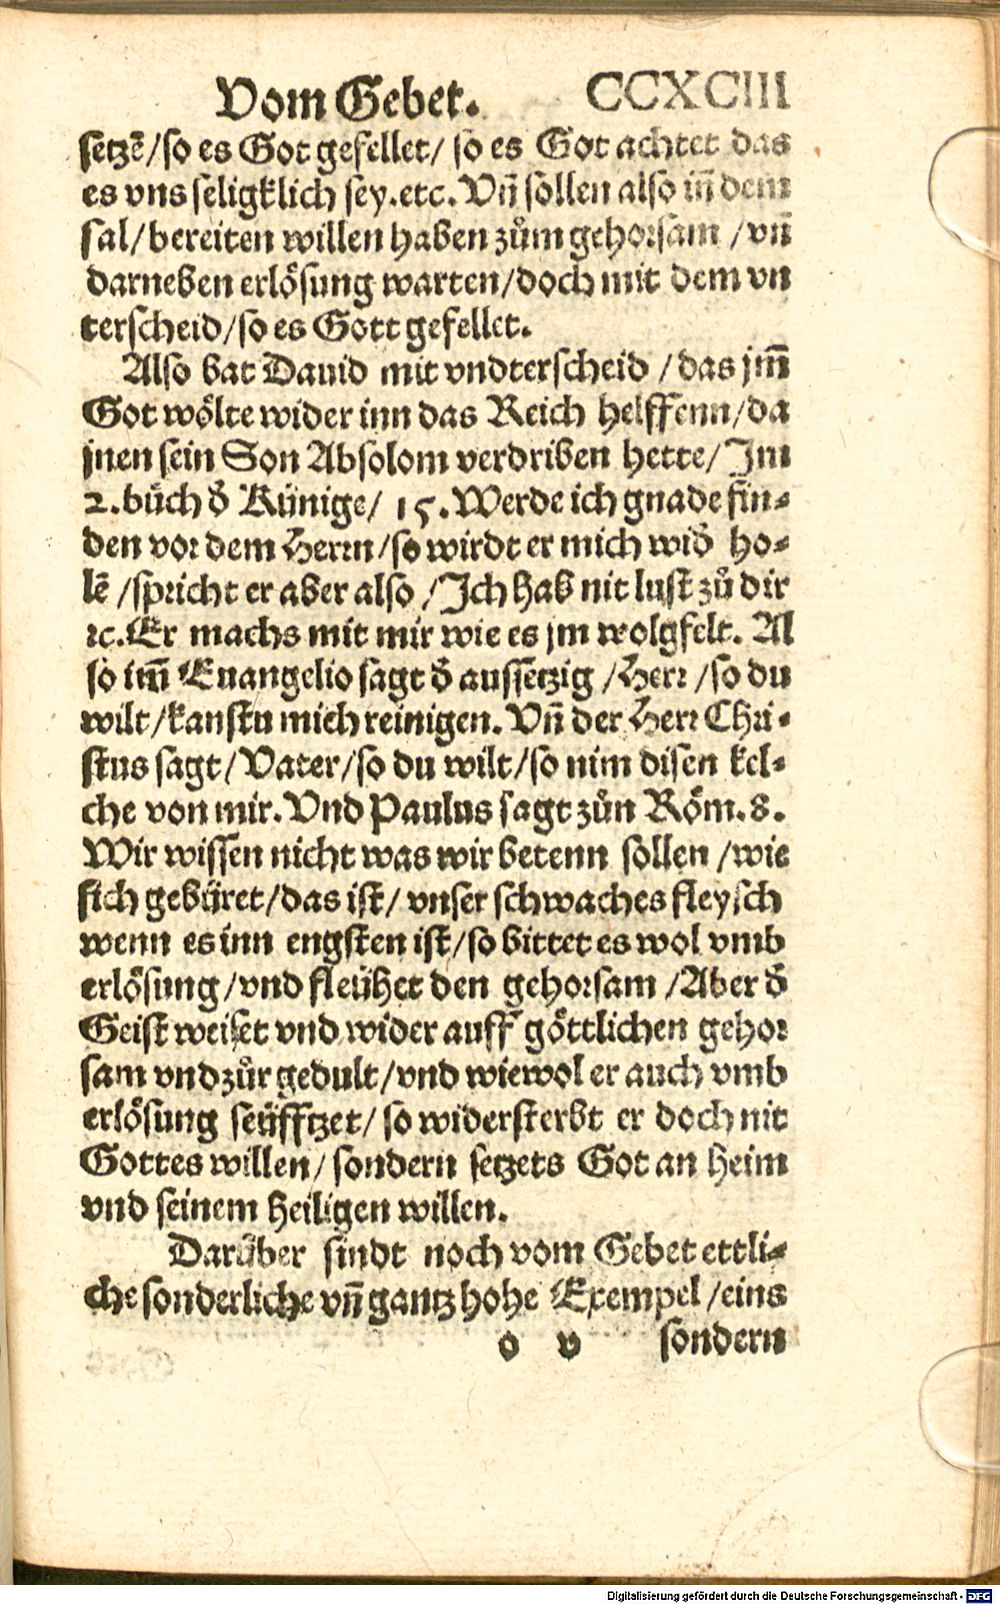 Vom Gebet. CCXCIII
setzē/so es Got gefellet/ so es Got achtet das
es vns seligklich sey.etc. Vñ sollen also iñ dem
fal/bereiten willen haben zům gehorsam /vñ
darneben erlösung warten/doch mit dem vn
terscheid/so es Gott gefellet.
Also bat Dauid mit vndterscheid /das jm̃
Got wölte wider inn das Reich helffenn/da
jnen sein Son Absolom verdriben hette/Im
2.bůch d̄ Künige/ 15.Werde ich gnade fin-
den vor dem Herrn/so wirdt er mich wid̄ ho-
lē /spricht er aber also /Ich hab nit lust zů dir
ꝛc.Er machs mit mir wie es jm wolgfelt. Al
so im̃ Euangelio sagt d̄ aussetzig /Herr /so du
wilt/kanstu mich reinigen. Vñ der Herr Chri-
stus sagt/Vater/so du wilt/so nim disen kel-
che von mir. Vnd Paulus sagt zůn Röm.8.
Wir wissen nicht was wir betenn sollen /wie
sich gebüret/das ist/ vnser schwaches fleysch
wenn es inn engsten ist/so bittet es wol vmb
erlösung/vnd fleühet den gehorsam /Aber d̄
Geist weiset vnd wider auff göttlichen gehor
sam vnd zůr gedult/vnd wiewol er auch vmb
erlösung seüfftzet/ so widersterbt er doch nit
Gottes willen/ sondern setzets Got an heim
vnd seinem heiligen willen.
Darüber sindt noch vom Gebet ettli-
che sonderliche vñ gantz hohe Exempel /eins
o v sondern
Digitalisierung gefördert durch die Deutsche Forschungsgemeinschaft - DFG